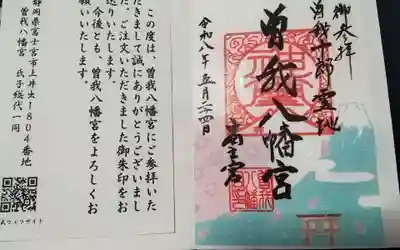 御参拝
曽我十郎霊地
曽我八幡宮
令和八年五月二四日
この度は、曽我八幡宮にご参拝いた
だきまして誠にありがとうございまし
た。ご注文いただきました御朱印をお
送りいたします。
今後とも、曽我八幡宮をよろしくお
願いいたします。
静岡県富士宮市上井出1804番地
曽我八幡宮 氏子総代一同